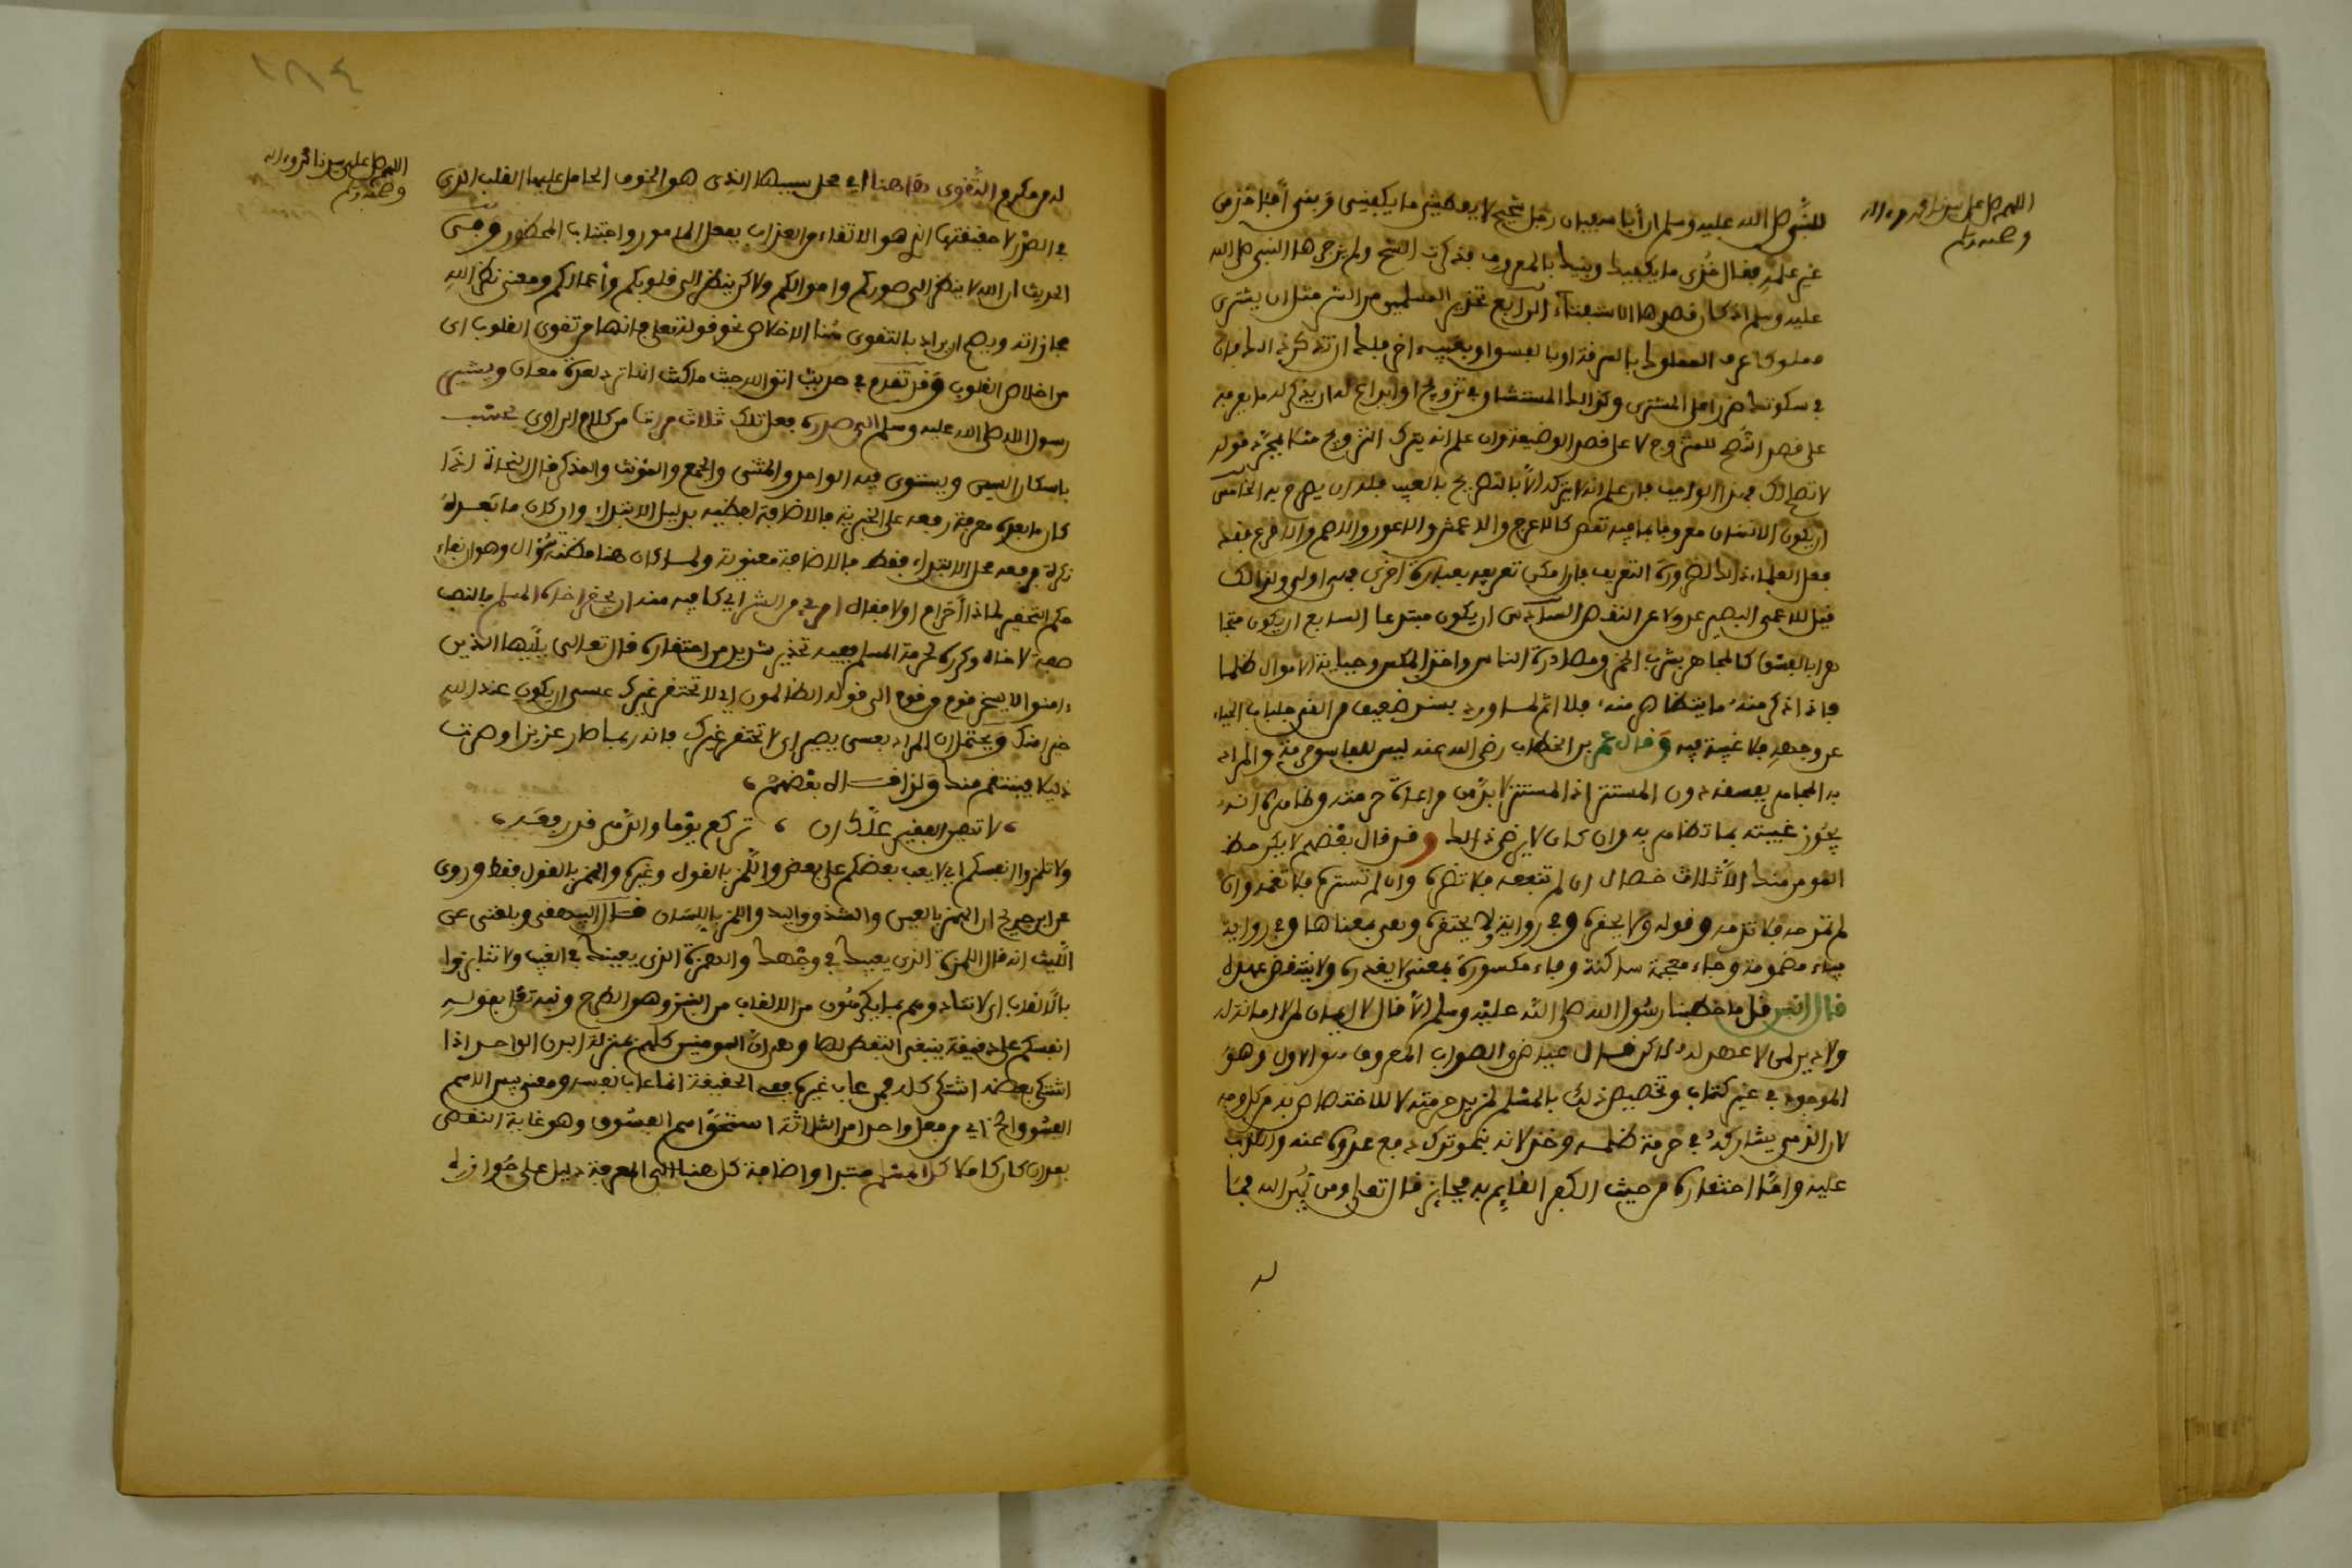 اللهم صل على سيدنا محمد وءاله
وصحبه وسلم
للنبي صلى الله عليه وسلم ان أبا سفيان رجل شحيح لا يعطيني ما يكفيني وبني أفآخذ من
غير علمه فقال خذي ما يكفيك وبنيك بالمعروف فذكرت الشح ولم يزجرها النبي صلى الله
عليه وسلم اذ كان قصدها الاستفتاء الرابع تحذير المسلمين من الشر مثل ان يشتري
مملوكا عرف المملوك بالسرقة او بالفسق او بعيب اخر فلك ان تذكر ذالك فان
في سكوتك ضررا على المشتري وكذالك المستشار في تزويج او ايداع له ان يذكر له ما يعرفه
على قصد النصح للمتزوج لا على قصد الوضيعة وان علم انه يترك التزوج مثلا بمجرد قوله
لا تصلح لك فهو الواجب فان علم انه لا يتركه الا بالتصريح بالعيب فله ان يصرح به الخامس
ان يكون الانسان معروفا بما فيه نقص كالاعرج والاعمش والاعور والاصم والاقرع فقد
فعل العلماء ذالك لضرورة التعريف فان امكن تعريفه بعبارة اخرى فهو اولى ولذالك
قيل للاعمى البصير عدولا عن النقص السادس ان يكون مبتدعا السابع ان يكون متجا
هرا بالفسق كالمجاهر بشرب الخمر ومصادرة الناس واخذ المكس وجباية الاموال ظلما
فاذا ذكر منه ما يتظاهر منه فلا اثم لما ورد بسند ضعيف من القى جلباب الحياء
عن وجهه فلا غيبة فيه وقال عمر بن الخطاب رضي الله عنه ليس للفاسق حرمة والمراد
به المجاهر بفسقه دون المستتر اذ المستتر لا بد من مراعاة حرمته وظاهره انه
يجوز غيبته بما تظاهر به وان كان لا يرضى ذالك وقد قال بعضهم لا يكن حظ
المومن منك الا ثلاث خصال ان لم تنفعه فلا تضره وان لم تسره فلا تغمه وان
لم تمدحه فلا تذمه وقوله ولا يحقره وفي رواية ولا يحتقره وهي بمعناها وفي رواية
بياء مضمومة وخاء معجمة ساكنة وفاء مكسورة بمعنى لا يغدره ولا ينقض عهده
قال انس قل ما خطبنا رسول الله صلى الله عليه وسلم الا قال لا ايمان لمن لا امانة له
ولا دين لمن لا عهد له لاكن قال عياض والصواب المعروف هو الاول وهو
الموجود في غير كتاب وتخصيص ذلك بالمسلم لمزيد حرمته لا للاختصاص به من كل وجه
لان الذمي يشاركه في حرمة ظلمه وخذلانه بنحو ترك دفع عدوه عنه والكذب
عليه واما احتقاره من حيث الكفر القايم به فجايز قال تعلى ومن يهن الله فما
له
١٨٤
اللهم صل على سيدنا محمد وءاله
وصحبه وسلم
له من مكرم التقوى هاهنا اي محل سببها الذي هو الخوف الحامل عليها القلب الذي
في الصدر لا حقيقتها التي هو الاتقاء من العذاب بفعل المامور واجتناب المحظور وفي
الحديث ان الله لا ينظر الى صوركم واموالكم ولاكن ينظر الى قلوبكم وأعمالكم ومعنى نظر الله
مجازاته ويصح ان يراد بالتقوى هنا الاخلاص نحو قوله تعلى فانها من تقوى القلوب اي
من اخلاص القلوب وقد تقدم في حديث اتق الله حيث ما كنت انها ترد لعدة معان ويشير
رسول الله صلى الله عليه وسلم الى صدره فعل تلك ثلاث مرات من كلام الراوي بحسب
باسكان السين ويستوي فيه الواحد والمثنى والجمع والمؤنث والمذكر قال النحاة اذا
كان ما بعده معرفة رفعه على الخبرية فالاضافة لفظية بدليل الابتداء وان كان ما بعده
نكرة فرفعه محل الابتداء فقط فالاضافة معنوية ولما كان هنا مظنة سؤال وهو انهاء
حكم التحقير لماذا أخر اولا فقال امرئ من الشر اي كافيه منه ان يحقر اخاه المسلم بالنصب
صفة لاخاه وكرره لحرمة المسلم ففيه تحذير شديد من احتقاره قال تعالى يأيها الذين
ءامنوا لا يسخر قوم من قوم الى قوله الظالمون اي لا تحتقر غيرك عسى ان يكون عند الله
خيرا منك ويحتمل ان المراد بعسى يصير اي لا تحتقر غيرك فانه ربما صار عزيزا وصرت
ذليلا فينتقم منك ولذا قال بعضهم
لا تهين الفقير علك ان ، تركع يوما والدهر قد رفعه
ولا تلمزوا انفسكم اي لا يعب بعضكم على بعض واللمز بالقول وغيره والهمز بالقول فقط وروي
عن ابن جريج ان الهمز بالعين والشدق واليد واللمز باللسان قال البيهقي وبلغني عن
الليث انه قال اللمزة الذي يعيبك في وجهك والهمزة الذي يعيبك في الغيب ولا تنابزوا
بالالقاب اي لا تنادوهم بما يكرهون من الالقاب من النبز وهو الطرح ونبه تعلى بقوله
انفسكم على دقيقة ينبغي التفطن لها وهي ان المومنين كلهم بمنزلة البدن الواحد اذا
اشتكى بعضه اشتكى كله فمن عاب غيره ففي الحقيقة انما عاب نفسه ومعنى بيس الاسم
الفسوق الخ اي من فعل واحدا من الثلاثة استحق اسم الفسوق وهو غاية النقص
بعد ان كان كاملا كل المسلم مبتدا واضافة كل هنا الى المعرفة دليل على جواز ذلك